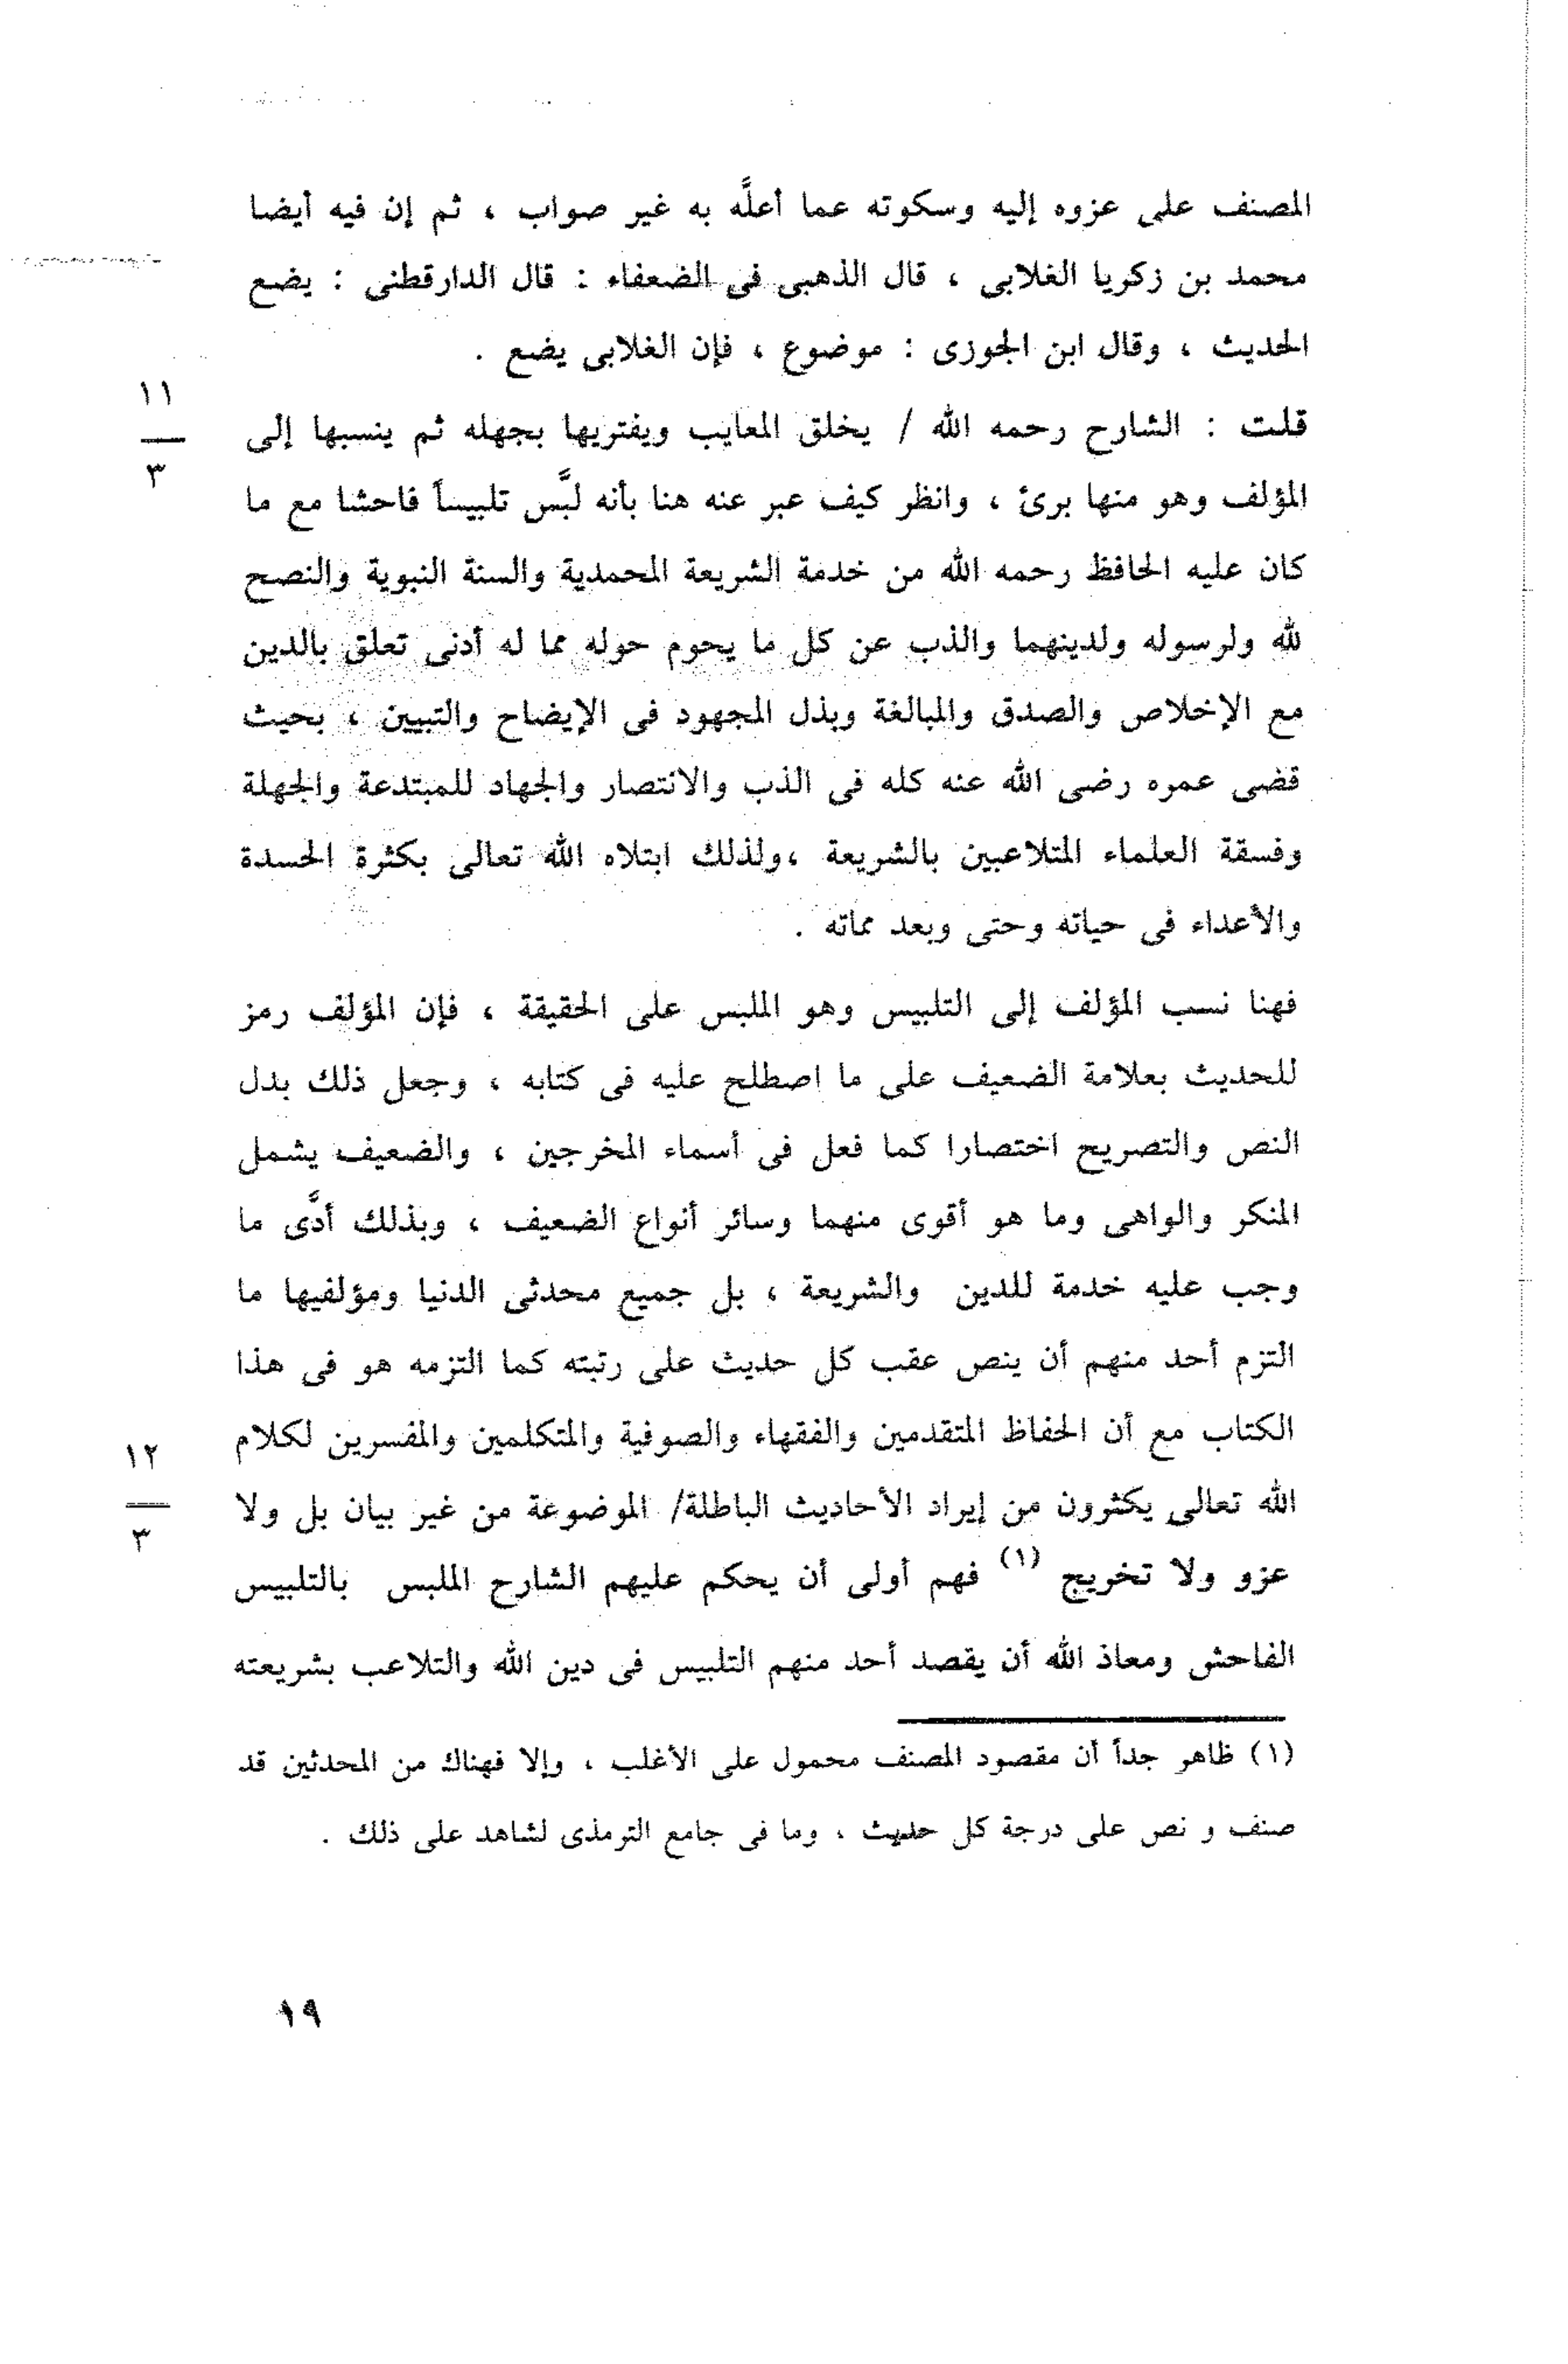 المصنف على عزوه إليه وسكوته عما أعلَّه به غير صواب ، ثم إن فيه أيضا
محمد بن زكريا الغلابى ، قال الذهبى فى الضعفاء : قال الدارقطنى : يضع
الحديث ، وقال ابن الجوزى : موضوع ، فإن الغلابى يضع .
١١
٣
قلت : الشارح رحمه الله / يخلق المعايب ويفتريها بجهله ثم ينسبها إلى
المؤلف وهو منها برئ ، وانظر كيف عبر عنه هنا بأنه لبَّس تلبيساً فاحشا مع ما
كان عليه الحافظ رحمه الله من خدمة الشريعة المحمدية والسنة النبوية والنصح
لله ولرسوله ولدينهما والذب عن كل ما يحوم حوله مما له أدنى تعلق بالدين
مع الإخلاص والصدق والمبالغة وبذل المجهود فى الإيضاح والتبيين ، بحيث
قضى عمره رضى الله عنه كله فى الذب والانتصار والجهاد للمبتدعة والجهلة
وفسقة العلماء المتلاعبين بالشريعة ،ولذلك ابتلاه الله تعالى بكثرة الحسدة
والأعداء فى حياته وحتى وبعد مماته .
فهنا نسب المؤلف إلى التلبيس وهو الملبس على الحقيقة ، فإن المؤلف رمز
للحديث بعلامة الضعيف على ما اصطلح عليه فى كتابه ، وجعل ذلك بدل
النص والتصريح اختصارا كما فعل فى أسماء المخرجين ، والضعيف يشمل
المنكر والواهى وما هو أقوى منهما وسائر أنواع الضعيف ، وبذلك أدَّى ما
وجب عليه خدمة للدين والشريعة ، بل جميع محدثى الدنيا ومؤلفيها ما
التزم أحد منهم أن ينص عقب كل حديث على رتبته كما التزمه هو فى هذا
الكتاب مع أن الحفاظ المتقدمين والفقهاء والصوفية والمتكلمين والمفسرين لكلام
١٢
٣
الله تعالى يكثرون من إيراد الأحاديث الباطلة/ الموضوعة من غير بيان بل ولا
عزو ولا تخريج (١) فهم أولى أن يحكم عليهم الشارح الملبس بالتلبيس
الفاحش ومعاذ الله أن يقصد أحد منهم التلبيس فى دين الله والتلاعب بشريعته
(١) ظاهر جداً أن مقصود المصنف محمول على الأغلب ، وإلا فهناك من المحدثين قد
صنف و نص على درجة كل حديث ، وما فى جامع الترمذى لشاهد على ذلك .
١٩